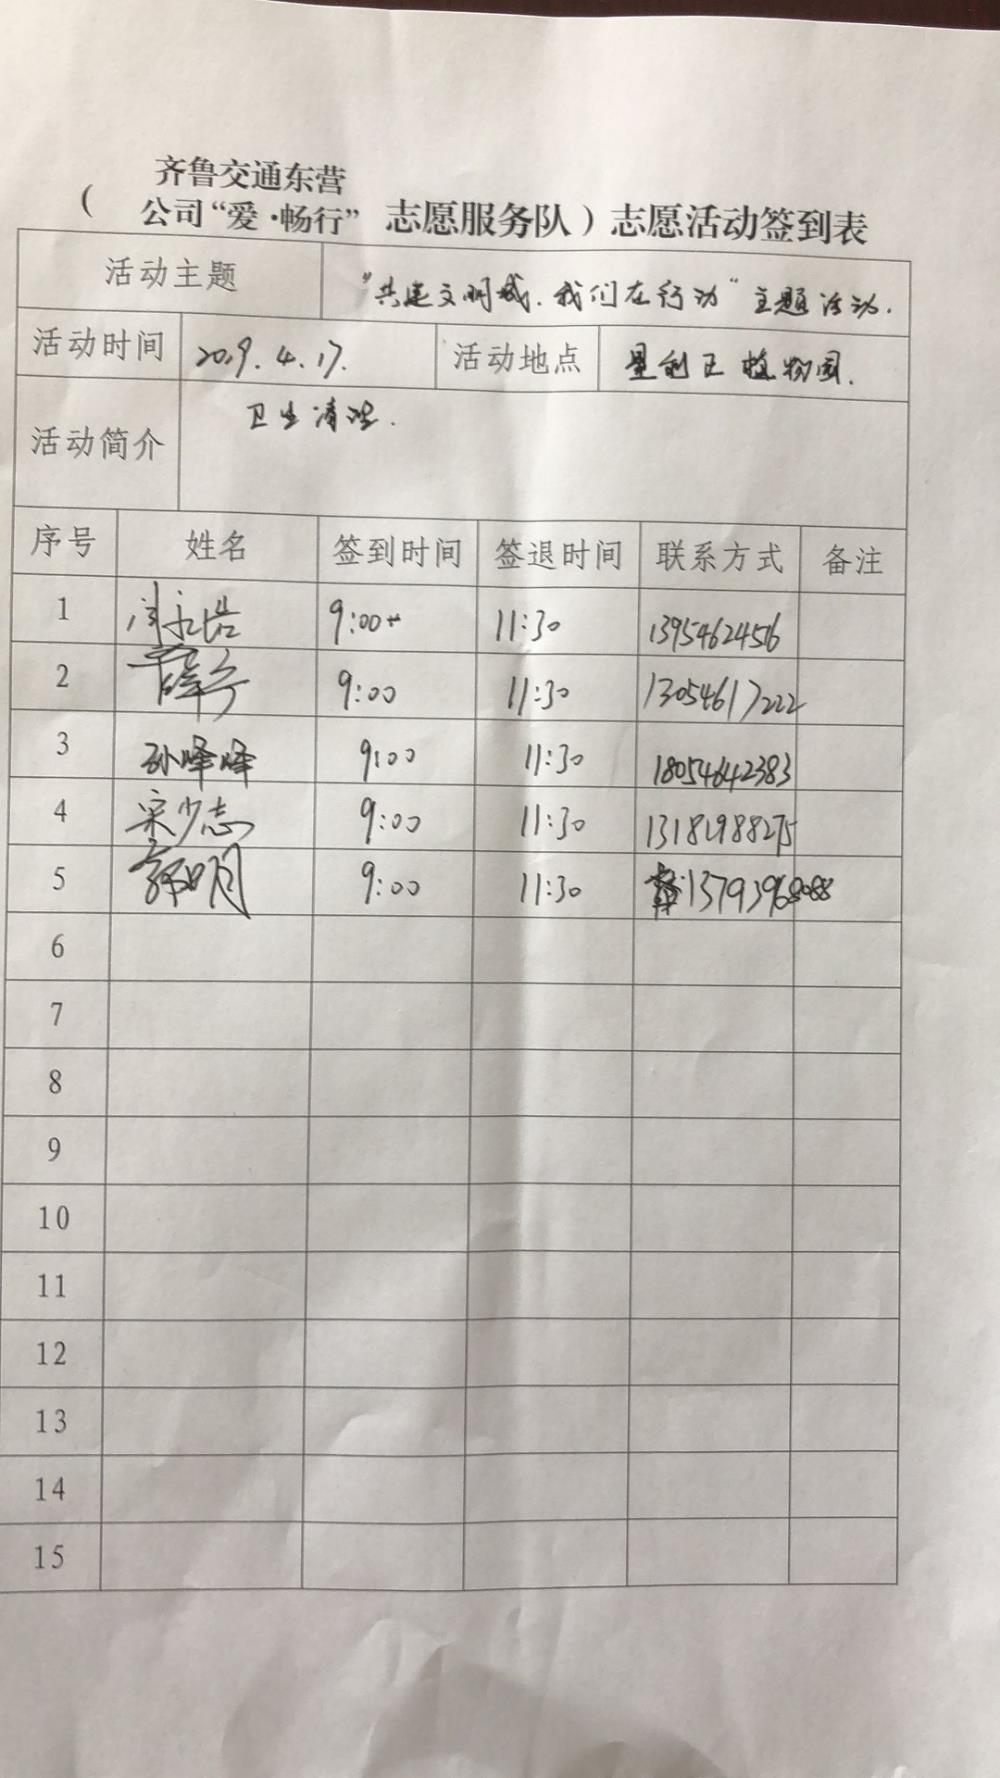 齐鲁交通东营
（公司“爱·畅行”志愿服务队）志愿活动签到表
活动主题 “共建文明城.我们在行动”主题活动.
活动时间 2019.4.17. 活动地点 垦利区植物园.
活动简介 卫生清洁.
序号 姓名 签到时间 签退时间 联系方式 备注
1 9:00 11:30 1395462456
2 薛宁 9:00 11:30 13054617222
3 孙峰峰 9:00 11:30 18054642383
4 宋少志 9:00 11:30 13181988275
5 郭明月 9:00 11:30 13793968088
6
7
8
9
10
11
12
13
14
15